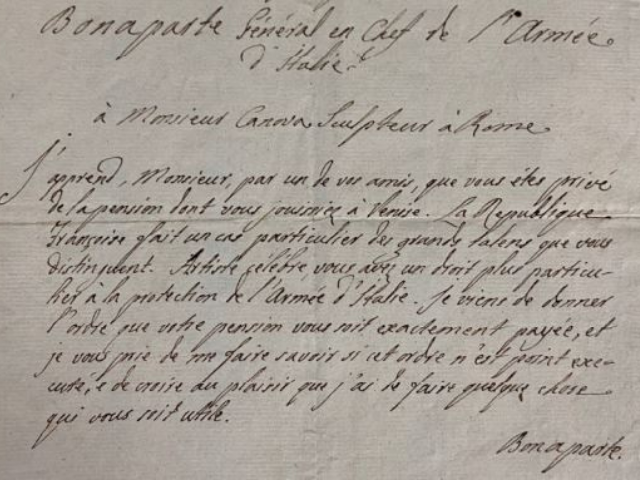 Bonaparte Général en Chef de l'Armée
d'Italie.
à Monsieur Canova Sculpteur à Rome.
J'apprend, Monsieur, par un de vos amis, que vous étes privé
de la pension dont vous jouissiez à Venise. La Republique
Françoise fait un cas particulier des grands talens que vous
distinguent. Artiste célébre, vous avez un droit plus particu-
lier à la protection de l'Armée d'Italie. Je viens de donner
l'ordre que votre pension vous soit exactement payée, et
je vous prie de me faire savoir si cet ordre n'est point exe-
cuté, e de croire au plaisir que j'ai de faire quelque chose
qui vous soit utile.
Bonaparte.